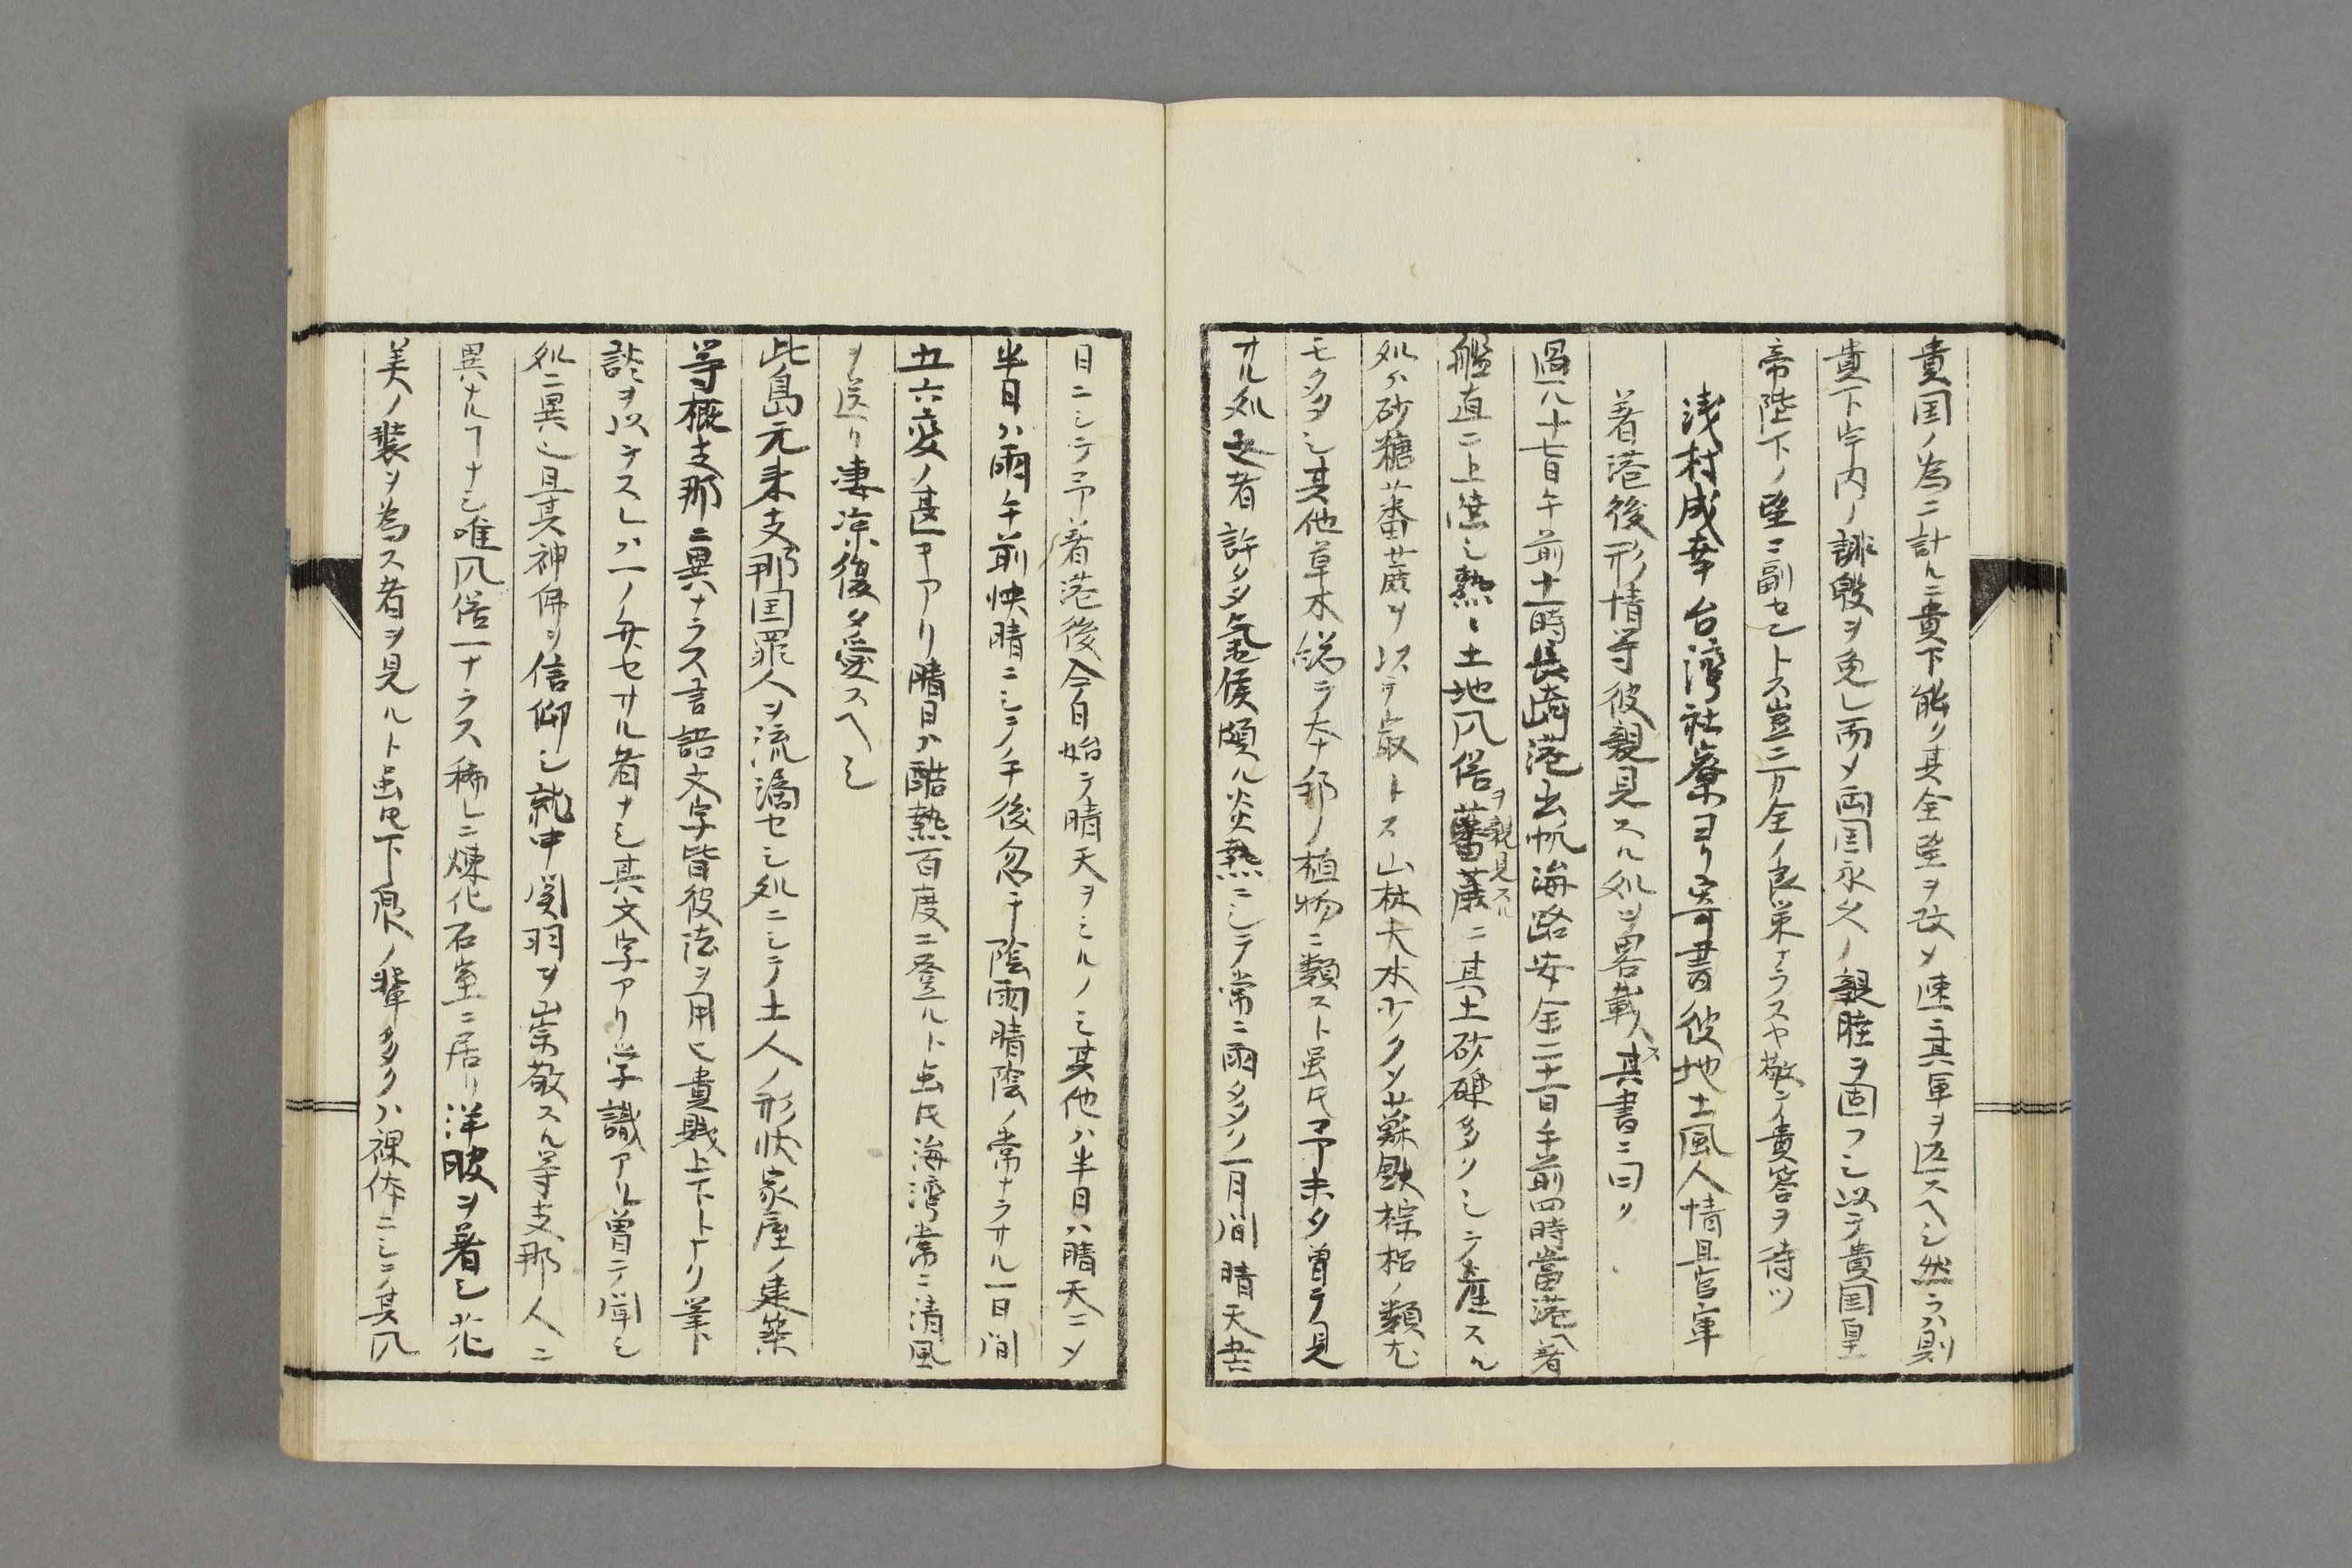 貴国ノ為ニ計ルニ貴下能ク其全望ヲ改メ速ニ其軍ヲ返スヘシ然ラハ則
貴下宇内ノ誹毀ヲ免レ而メ両国永久ノ親睦ヲ固フシ以テ貴国皇
帝陛下ノ望ニ副セントス豈ニ万全ノ良策ナラスヤ敬シイ貴答ヲ待ツ
浅村成幸台湾社寮ヨリ寄書彼地土風人情且官軍
着港後形情等彼親見スル処ヲ畧載ス其書ニ曰ク
過ル十七日午前十一時長崎港出帆海路安全二十一日午前四時當港ヘ着
艦直ニ上陸シ熟〻土地風俗ヲ親見スルニ其土砂礫多クシテ産スル
処ハ砂糖蕃蔗ヲ以テ最トス山林大木少クシ蘇鉄棕梠ノ類尤
モ多シ其他草木総テ本邦ノ植物ニ類スト虽𪜈予未タ曽テ見
サル処之者許多氣候頗ル炎熱ニシテ常ニ雨多ク一月間晴天
日ニシテ予着港後今日始テ晴天ヲミルノミ其他ハ半日ハ晴天ニメ
半日ハ雨午前快晴ニシテ午後忽チ陰雨晴陰ノ常ナラサル一日間
五六変ノ甚キアリ晴日ハ酷熱百度ニ登ルト虽𪜈海湾常ニ清風
ヲ送リ凄凉復タ愛スヘシ
此島元来支那国罪人ヲ流謫セシ処ニシテ土人ノ形状家屋ノ建築
等概支那ニ異ナラス言語文字皆彼法ヲ用ヒ貴賎上下トナリ筆
談ヲ以テスレハ一ノ弁セサル者ナシ其文字アリ学識アル曽テ聞シ
処ニ異ヒ且其神佛ヲ信仰シ就中関羽ヲ崇敬スル等支那人ニ
異ナルヿナシ唯風俗一ナラス稀レニ煉化石室ニ居リ洋服ヲ着シ花
美ノ装ヲ為ス者ヲ見ルト虽𪜈下泉ノ輩多クハ裸体ニシテ其風